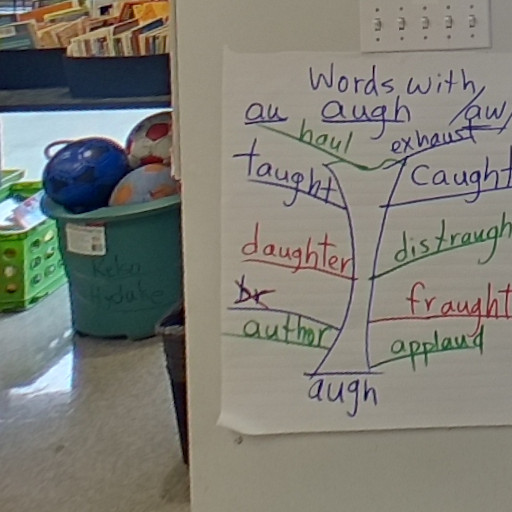 Words with
au augh /aw
haul exhaust
taught caught
daughter distraugh
br fraught
author applaud
augh